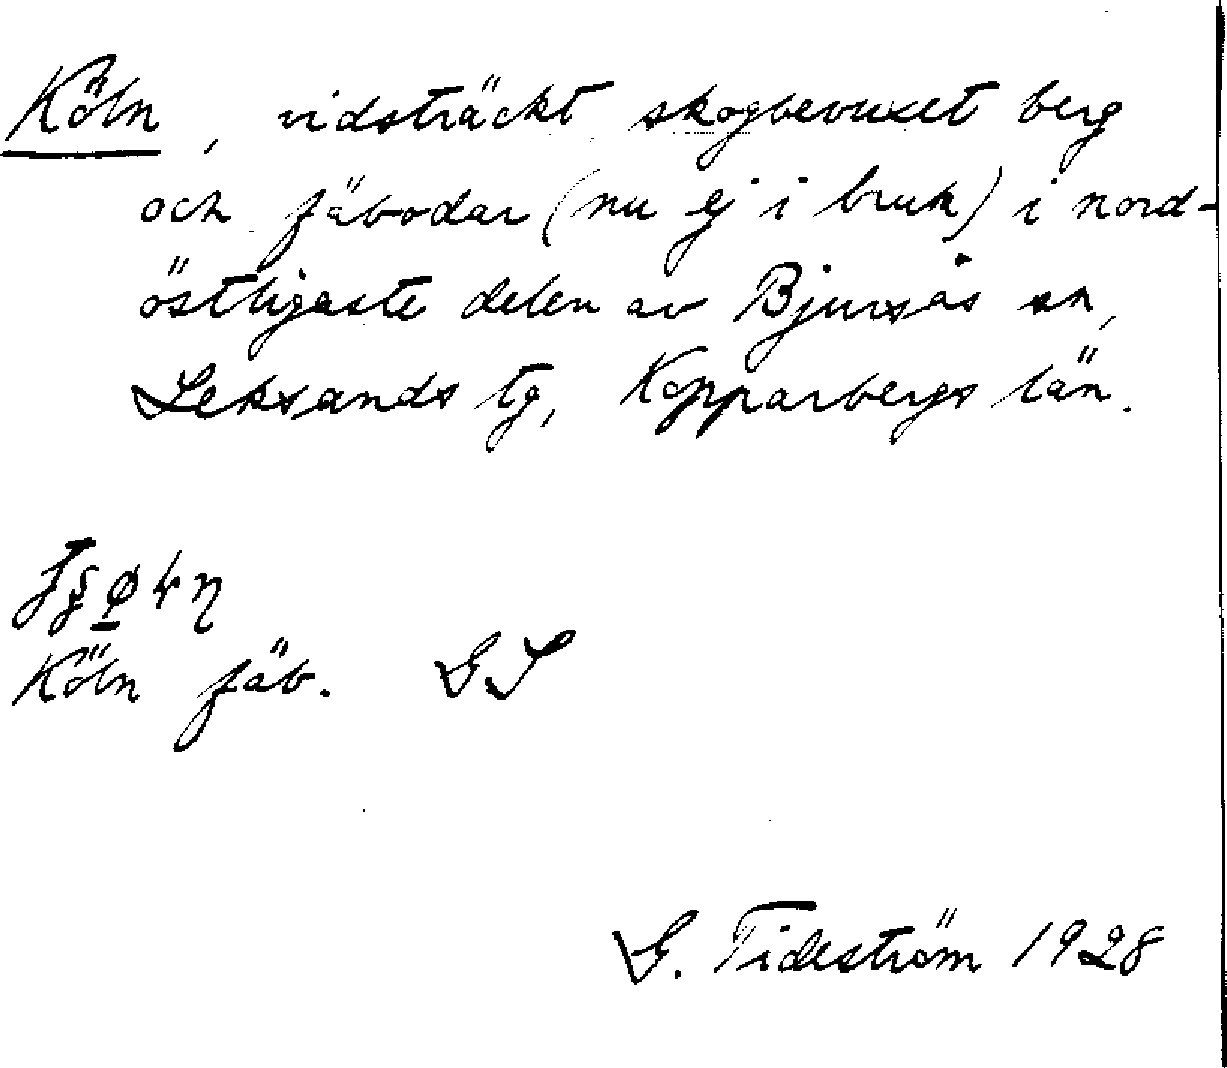 Köln, vidsträckt skogbevuxet berg
och fäbodar (nu ej i bruk) i nord-
östligaste delen av Bjursås sn,
Leksands tg, Kopparbergs län.
Köln fäb. GS
G. Tideström 1928